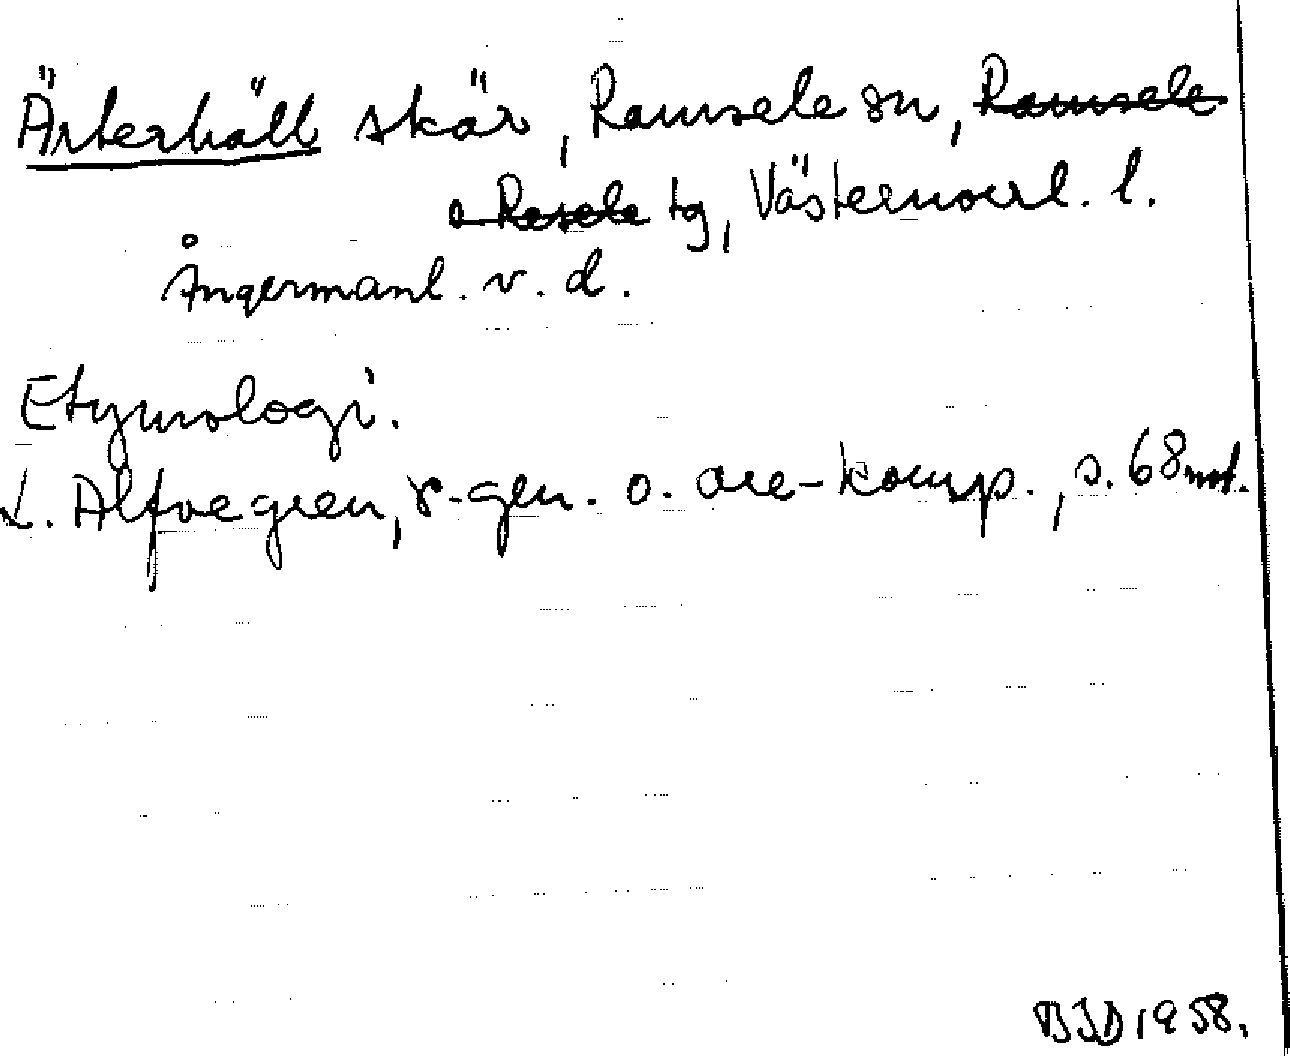 Ärterhäll skär, Ramsele sn, Ramsele
o. Resele tg, Västernorrl. l.
Ångermanl. v. d.
Etymologi.
L. Alfvegren, r-gen. o. are-komp., s. 68 not.
BJD 1958.